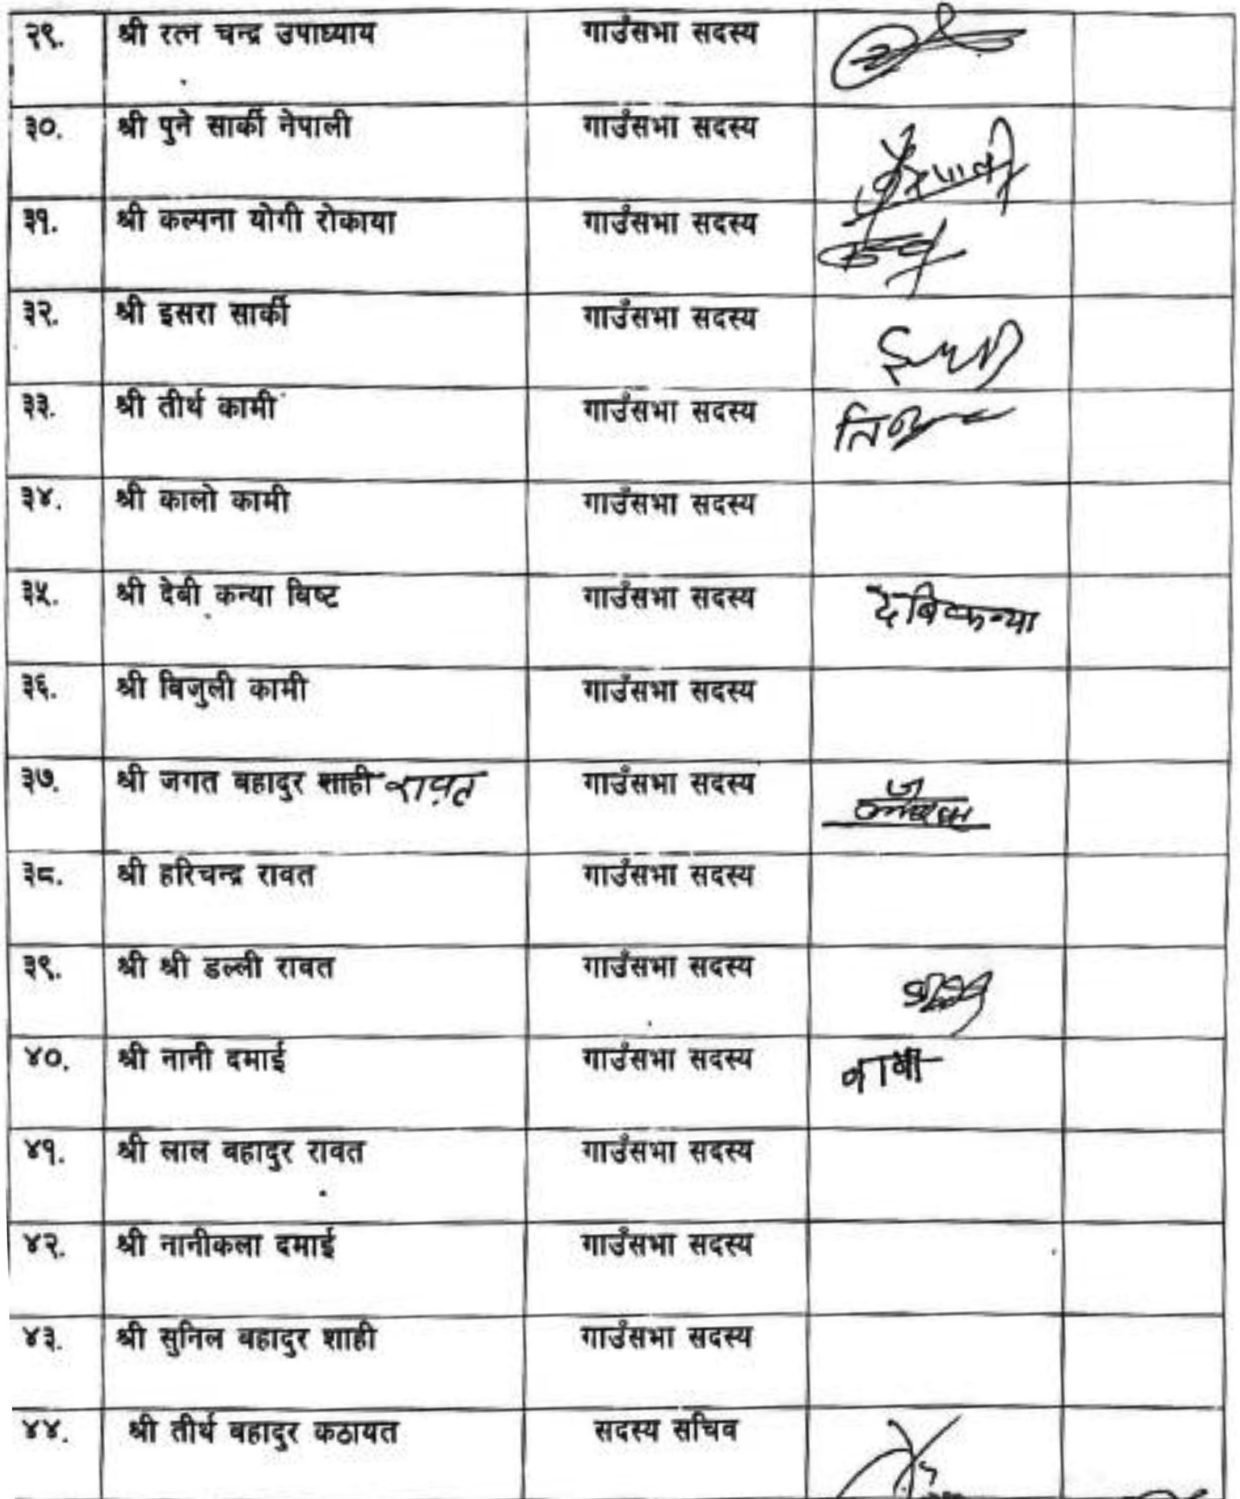 २९. श्री रत्न चन्द्र उपाध्याय गाउँसभा सदस्य
३०. श्री पुने सार्की नेपाली गाउँसभा सदस्य
३१. श्री कल्पना योगी रोकाया गाउँसभा सदस्य
३२. श्री इसरा सार्की गाउँसभा सदस्य
३३. श्री तीर्थ कामी गाउँसभा सदस्य
३४. श्री कालो कामी गाउँसभा सदस्य
३५. श्री देबी कन्या बिष्ट गाउँसभा सदस्य देबिकन्या
३६. श्री बिजुली कामी गाउँसभा सदस्य
३७. श्री जगत बहादुर शाही रावत गाउँसभा सदस्य
३८. श्री हरिचन्द्र रावत गाउँसभा सदस्य
३९. श्री श्री डल्ली रावत गाउँसभा सदस्य
४०. श्री नानी दमाई गाउँसभा सदस्य
४१. श्री लाल बहादुर रावत गाउँसभा सदस्य
४२. श्री नानीकला दमाई गाउँसभा सदस्य
४३. श्री सुनिल बहादुर शाही गाउँसभा सदस्य
४४. श्री तीर्थ बहादुर कठायत सदस्य सचिव